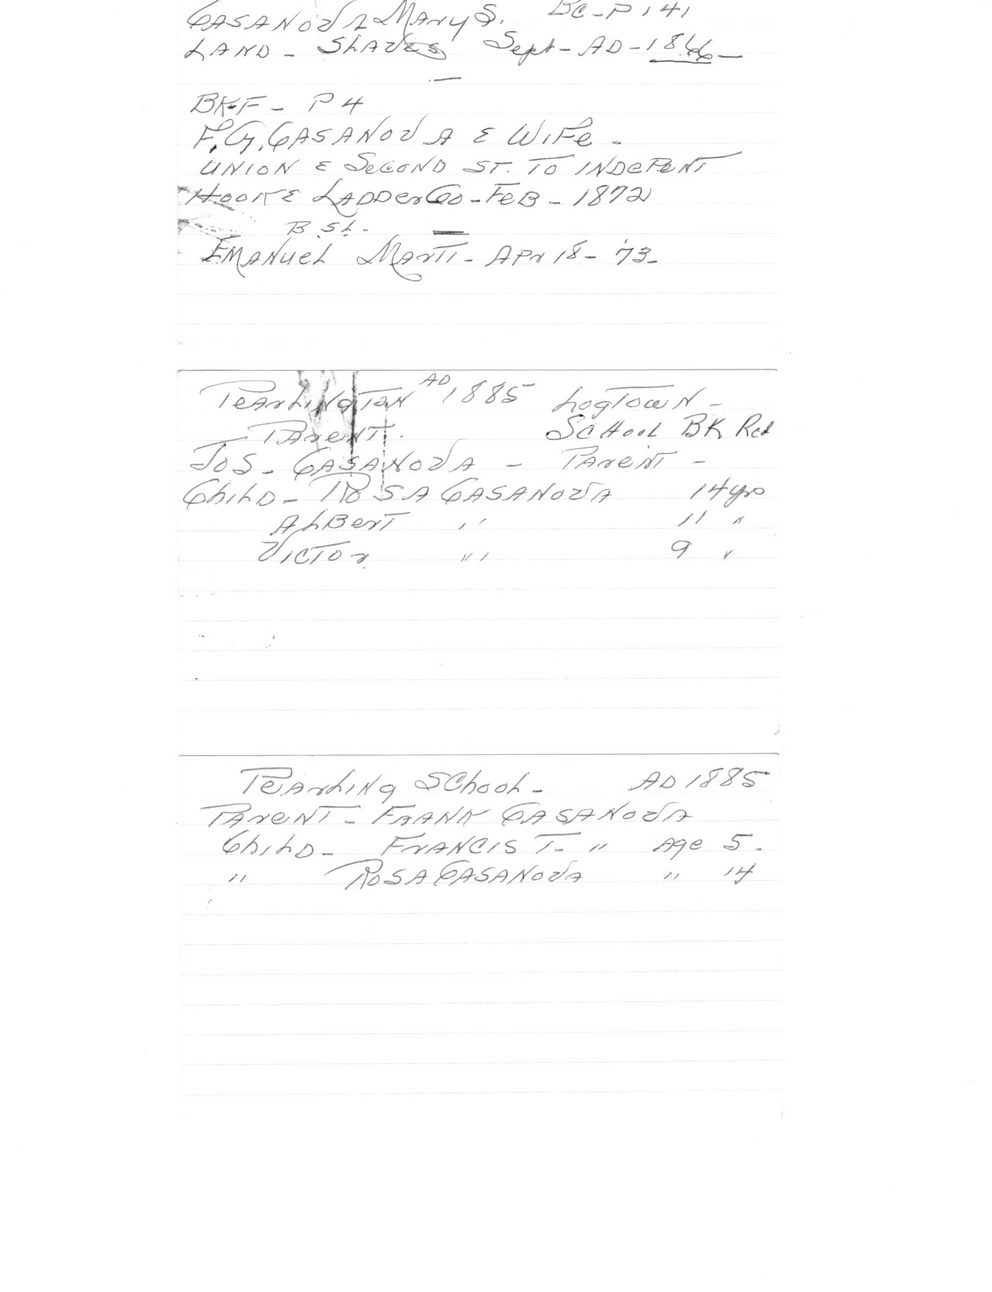 CASANOVA MARY S. BC-P 141
LAND - SLAVES Sept - AD - 1846 -
BK-F - P 4
F.G. CASANOVA & WIFE -
UNION & SECOND ST. TO INDEPENT
HOOK & LADDER CO - FEB - 1872
B. St. -
EMANUEL MARTI - APR 18 - '73 -
PEARLINGTON AD 1885 LOGTOWN -
PARENT. SCHOOL BK Rcd
JOS - CASANOVA - PARENT -
CHILD - ROSA CASANOVA 14 yrs
ALBERT " 11 "
VICTOR " 9 "
PEARLING SCHOOL - AD 1885
PARENT - FRANK CASANOVA
CHILD - FRANCIS T. " Age 5 -
" ROSA CASANOVA " 14